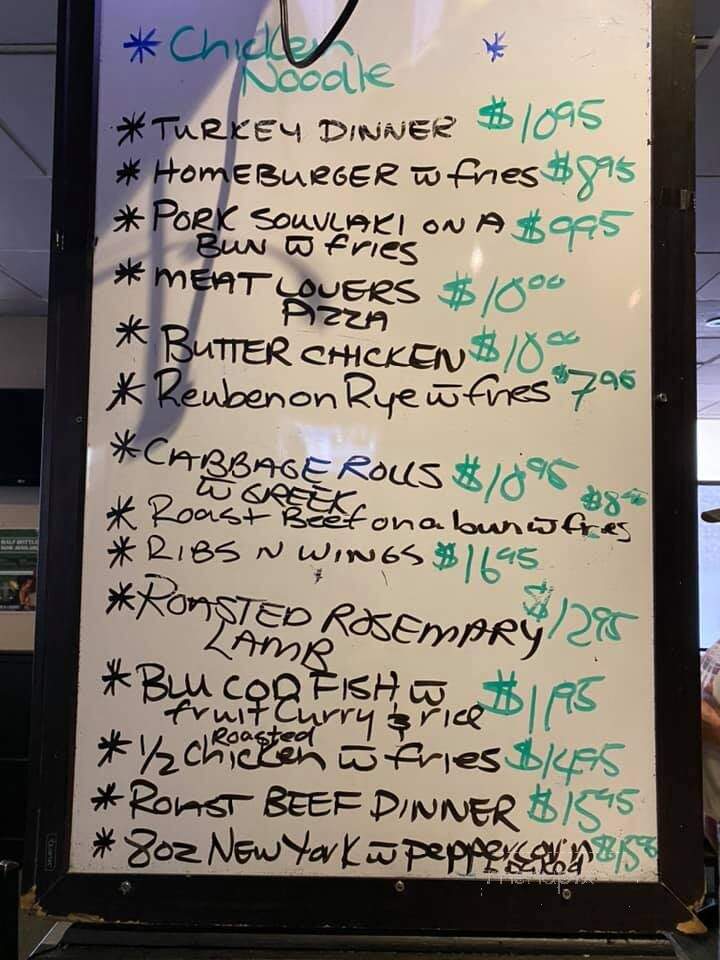 * Chicken *
Nooodle
* TURKEY DINNER $10 95
* HOMEBURGER w̅ fries $8 95
* PORK SOUVLAKI ON A $9 95
BUN w̅ fries
* MEAT LOVERS $10 00
PIZZA
* BUTTER CHICKEN $10 00
* Reuben on Rye w̅ fries $7 95
* CABBAGE ROLLS $10 95
w̅ GREEK
* Roast Beef on a bun w̅ fries $8
* RIBS N WINGS $16 95
* ROASTED ROSEMARY $12 95
LAMB
* BLU COD FISH w̅ $11 95
fruit Curry & rice
* 1/2 Roasted Chicken w̅ fries $14 95
* ROAST BEEF DINNER $15 95
* 8oz New York w̅ peppercorn $15 95